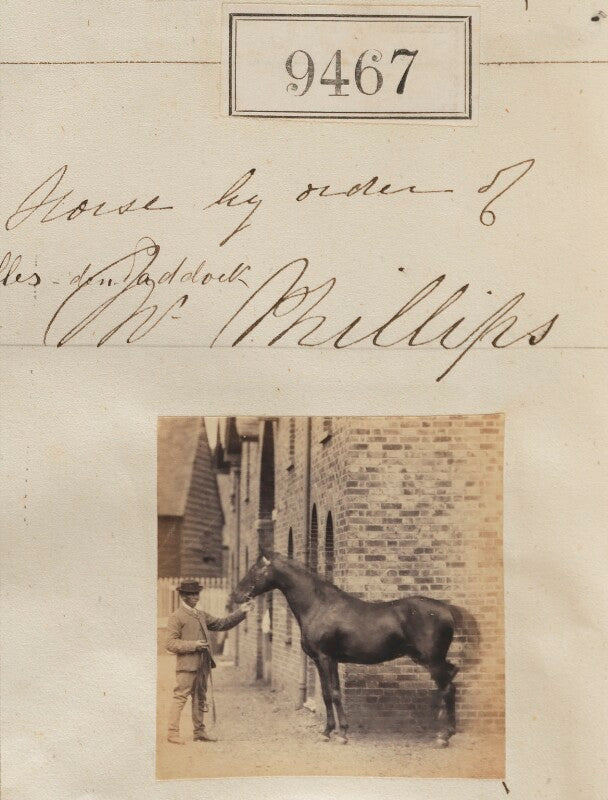 9467
Horse by order of
lles - den Paddock
Mr Phillips